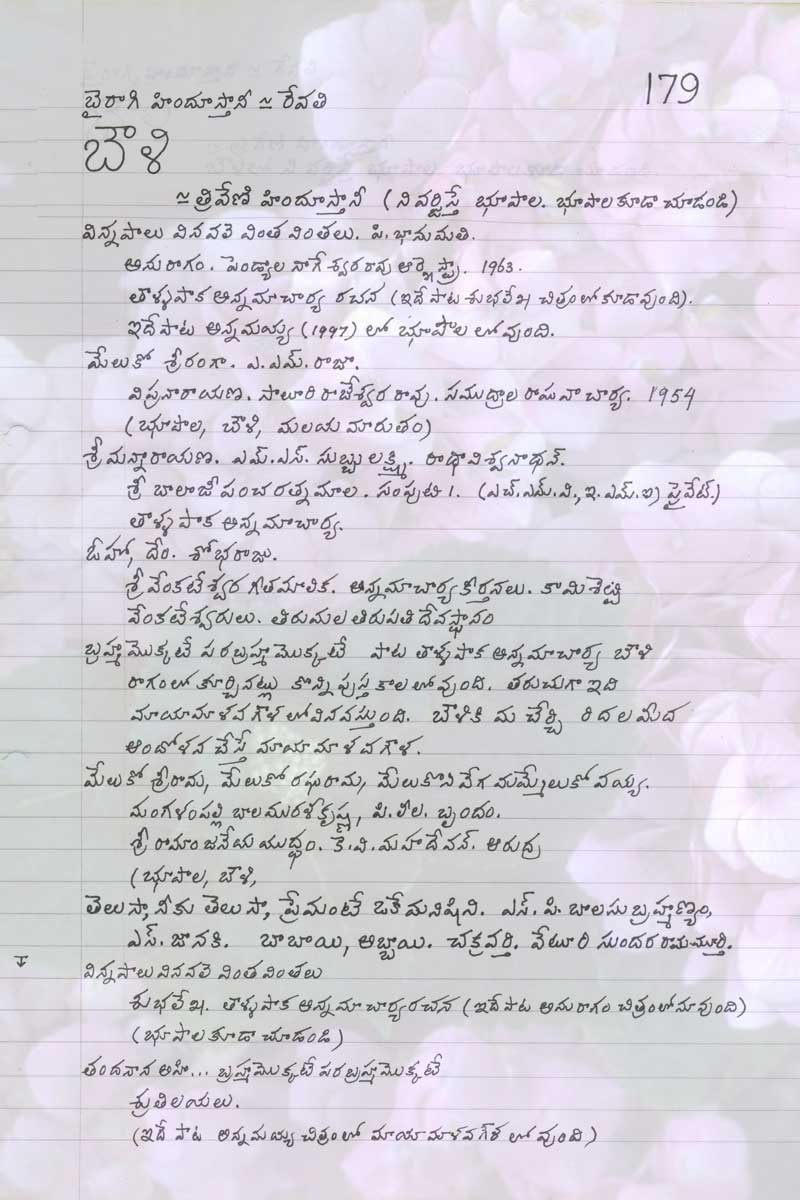 179
బైరాగి హిందూస్తానీ ≃ రేవతి
బౌళి
≃ త్రివేణి హిందూస్తానీ (ని వర్జిస్తే భూపాల. భూపాల కూడా చూడండి)
విన్నపాలు వినవలె వింత వింతలు. పి. భానుమతి.
అనురాగం. పెండ్యాల నాగేశ్వరరావు ఆర్కెస్ట్రా. 1963.
తాళ్ళపాక అన్నమాచార్య రచన (ఇదే పాట శుభలేఖ చిత్రంలో కూడా వుంది).
ఇదే పాట అన్నమయ్య (1997) లో భూపాల లో వుంది.
మేలుకో శ్రీరంగా. ఎ. ఎమ్. రాజా.
విప్రనారాయణ. సాలూరి రాజేశ్వర రావు. సముద్రాల రాఘవాచార్య. 1954
(భూపాల, బౌళి, మలయమారుతం)
శ్రీమన్నారాయణ. ఎమ్. ఎస్. సుబ్బులక్ష్మి. రాధావిశ్వనాథన్.
శ్రీ బాలాజీ పంచరత్నమాల. సంపుటి 1. (ఎచ్. ఎమ్. వి., ఇ. ఎమ్. ఐ) ప్రైవేట్.)
తాళ్ళపాక అన్నమాచార్య.
ఓహో, దేం. శోభరాజు.
శ్రీ వేంకటేశ్వర గీతమాలిక. అన్నమాచార్య కీర్తనలు. కామిశెట్టి
వేంకటేశ్వరులు. తిరుమల తిరుపతి దేవస్థానం
బ్రహ్మమొక్కటే పరబ్రహ్మమొక్కటే పాట తాళ్ళపాక అన్నమాచార్య బౌళి
రాగంలో కూర్చినట్లు కొన్ని పుస్తకాలలో వుంది. తరుచుగా ఇది
మాయామాళవగౌళలో వినవస్తుంది. బౌళికి మ చేర్చి రిదల మీద
ఆందోళన చేస్తే మాయామాళవగౌళ.
మేలుకో శ్రీరామ, మేలుకో రఘురామ, మేలుకొని వేగ మమ్మేలుకోవయ్య.
మంగళంపల్లి బాలమురళీకృష్ణ, పి. లీల. బృందం.
శ్రీ రామాంజనేయయుద్ధం. కె. వి. మహాదేవన్. ఆరుద్ర
(భూపాల, బౌళి,
తెలుసా, నీకు తెలుసా, ప్రేమంటే ఒకే మనిషిని. ఎస్. పి. బాలసుబ్రహ్మణ్యం,
ఎస్. జానకి. బాబాయి, అబ్బాయి. చక్రవర్తి. వేటూరి సుందరరామమూర్తి.
విన్నపాలు వినవలె వింత వింతలు
శుభలేఖ. తాళ్ళపాక అన్నమాచార్య రచన (ఇదే పాట అనురాగం చిత్రంలోనూ వుంది)
(భూపాల కూడా చూడండి)
తందనాన అహి... బ్రహ్మమొక్కటే పరబ్రహ్మమొక్కటే
శ్రుతిలయలు.
(ఇదే పాట అన్నమయ్య చిత్రంలో మాయామాళవగౌళ లో వుంది)